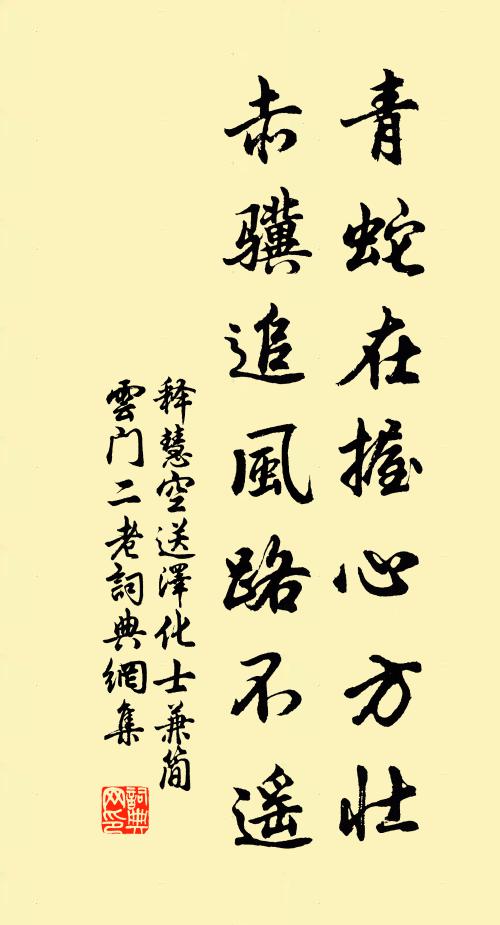 青蛇在握心方壮
赤骥追風路不遥
释慧空送澤化士兼简
雲门二老詞典網集
詞典
网印